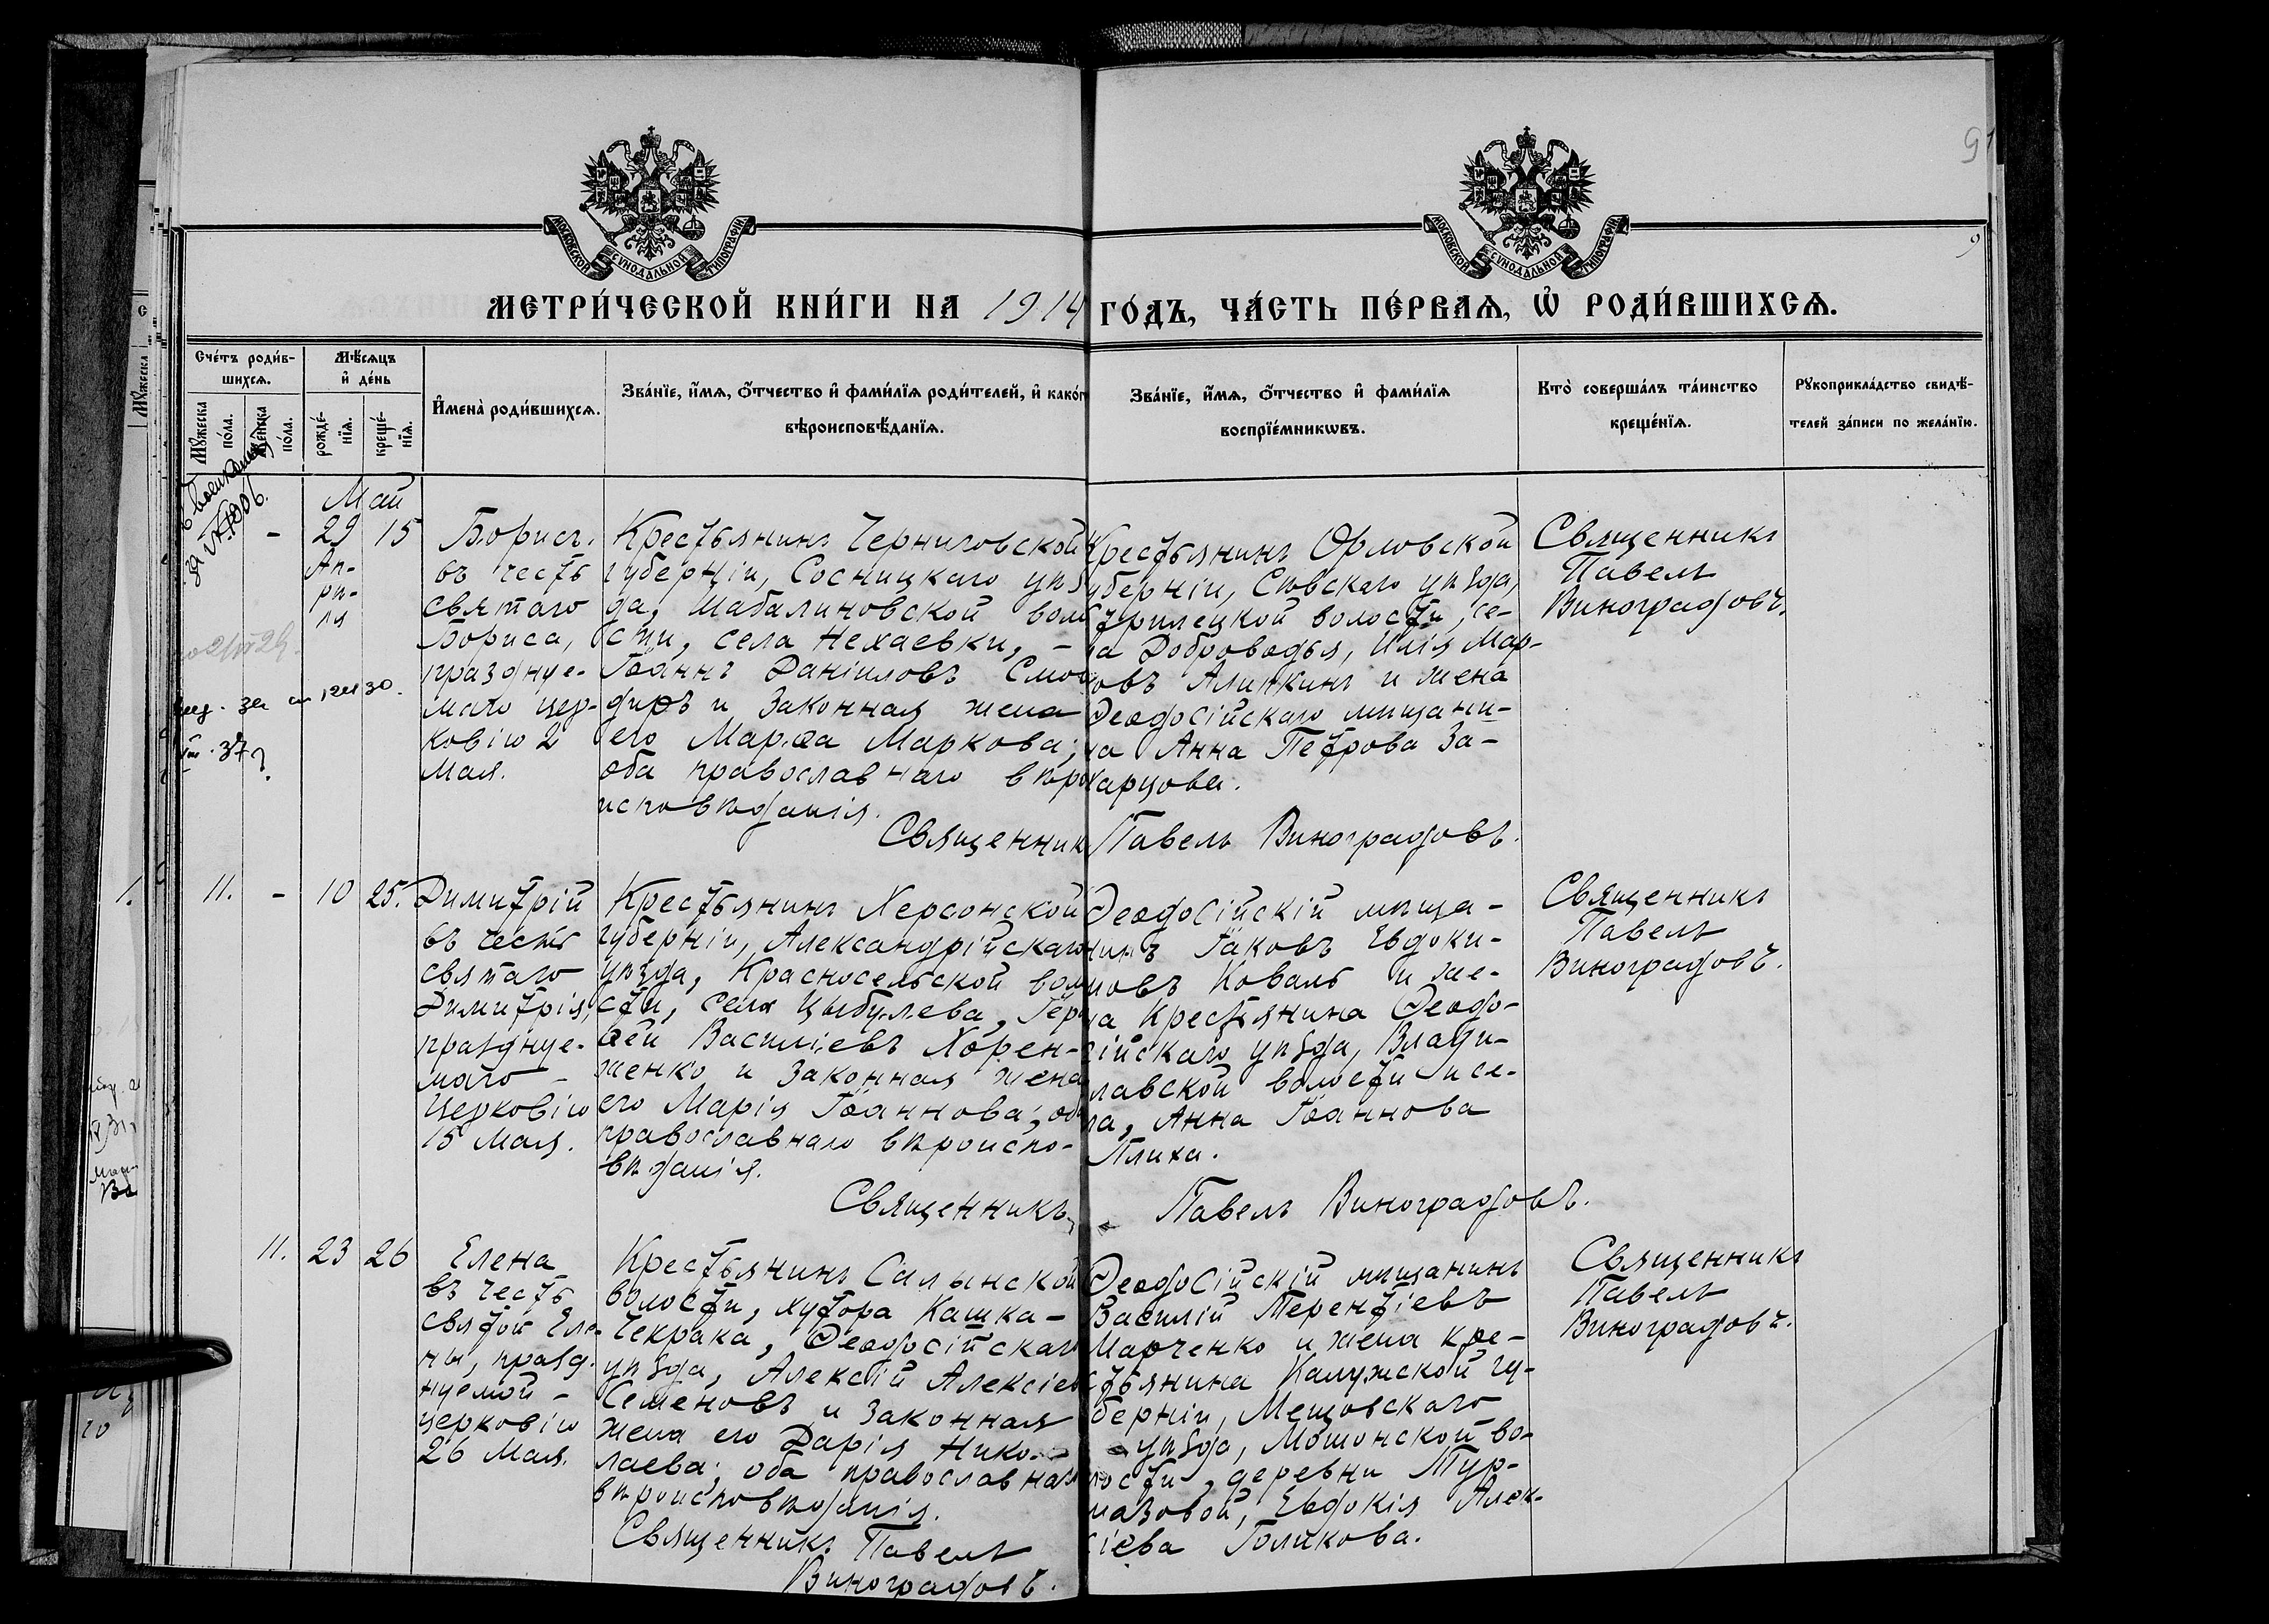 МОСКОВСКОЙ СѴНОДАЛЬНОЙ ТИПОГРАФІИ
МОСКОВСКОЙ СѴНОДАЛЬНОЙ ТИПОГРАФІИ
91
9
МЕТРИ́ЧЕСКОЙ КНИ́ГИ НА 1914 ГО́ДЪ, ЧА́СТЬ ПЕ́РВАѦ, Ѡ҆ РОДИ́ВШИХСѦ.
Сче́тъ роди́в-
шихсѧ.
Мꙋ́жеска
по́ла.
Же́нска
по́ла.
Мѣ́сѧцъ
и҆ де́нь
рожде́-
нїѧ.
креще́-
нїѧ.
И҆мена̀ роди́вшихсѧ.
Зва́нїе, и҆́мѧ, ѻ҆́тчество и҆ фами́лїѧ роди́телей, и҆ како́г
вѣроисповѣ́данїѧ.
Зва́нїе, и҆́мѧ, ѻ҆́тчество и҆ фами́лїѧ
воспрїе́мникѡвъ.
Кто̀ соверша́лъ та́инство
креще́нїѧ.
Рꙋкоприкла́дство свидѣ́-
телей за́писи по жела́нїю.
Май
- 29 15
Ап-
рѣ-
ля
Борисъ.
въ честь
святаго
Бориса,
празднуе-
маго цер-
ковію 2
Мая.
Крестьянинъ Черниговской
губерніи, Сосницкаго уѣз
да, Шабалиновской воло
сти, села Нехаевки, -
Іоаннъ Даніиловъ
и законная жена
его Марѳа Маркова;
оба православнаго вѣро
исповѣданія.
Священник
Крестьянинъ Орловской
губерніи, Сѣвскаго уѣзда,
волости, се-
ла Доброводья, Илія Мар-
ковъ Алипкинъ и жена
Ѳеодосійскаго мѣщани-
на Анна Петрова За-
харцова.
Павелъ Виноградовъ.
Священникъ
Павелъ
Виноградовъ.
11. - 10 25.
Димитрій
въ честь
святаго
Димитрія,
празднуе-
маго -
Церковію
15 Мая.
Крестьянинъ Херсонской
губерніи, Александрійскаго
уѣзда, Красносельской воло
сти, села Цыбулева,
Василіевъ Хорен-
женко и законная жена
его Марія Іоаннова; оба
православнаго вѣроиспо-
вѣданія.
Священникъ
Ѳеодосійскій мѣща-
нинъ Іаковъ Евдоки-
мовъ Коваль и же-
на крестьянина Ѳеодо-
сійскаго уѣзда, Влади-
славской волости и се-
ла, Анна Іоаннова
Плиха.
Павелъ Виноградовъ.
Священникъ
Павелъ
Виноградовъ.
11. 23 26
Елена
въ честь
святой Еле-
ны, празд-
нуемой -
церковію
26 Мая.
Крестьянинъ Салынской
волости, хутора Кашка-
Чекрака, Ѳеодосійскаго
уѣзда, Алексій Алексіев
Семеновъ и законная
жена его Дарія Нико-
лаева; оба православнаго
вѣроисповѣданія.
Священникъ Павелъ
Виноградовъ.
Ѳеодосійскій мѣщанинъ
Василій Терентіевъ
Марченко и жена кре-
стьянина Калужской гу-
берніи, Мещовскаго
уѣзда, Мошонской во-
лости, деревни Тур-
мазовой, Евдокія Алек-
сіева Голикова.
Священникъ
Павелъ
Виноградовъ.